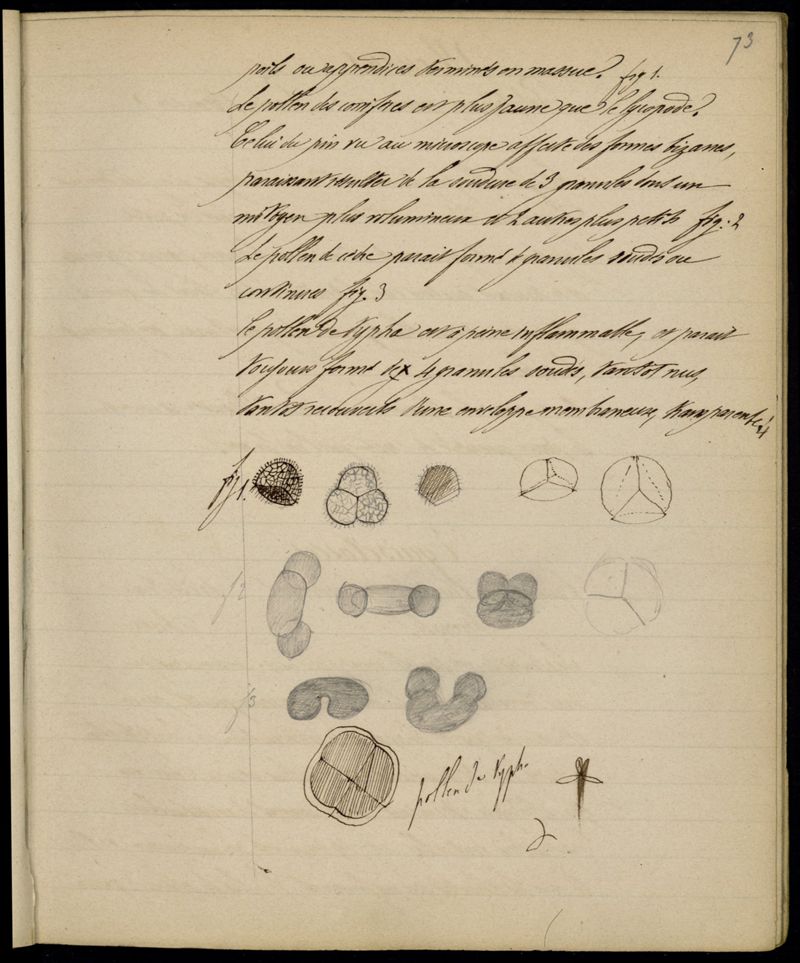 73
poils ou appendices terminés en massue. fig 1.
Le pollen des conifères est plus jaune que le lycopode.
Celui du pin vu au microscope affecte des formes bizarres,
paraissant résulter de la soudure de 3 granules dont un
mitoyen plus volumineux et 2 autres plus petits fig. 2
Le pollen de cèdre parait formé de granules soudés ou
continues fig. 3
Le pollen de typha est à peine inflammable, et parait
toujours formé de 4 granules soudés, tantôt nus,
tantôt recouverts d'une enveloppe membraneuse, transparente 4
fig 1.
f 2
f 3
pollen de typha